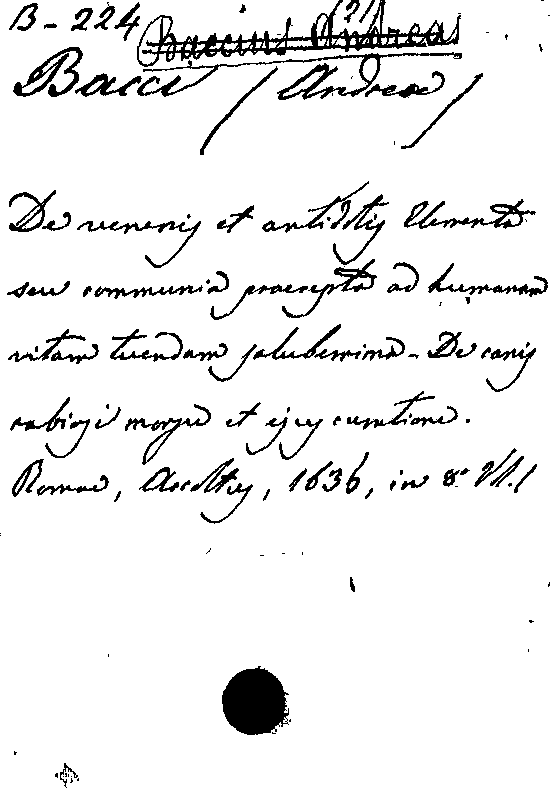 B - 224
Baccius Andreas
Bacci (Andrea)
De venenis et antidotis Elementa
seu communia praecepta ad humanam
vitam tuendam saluberrima - De canis
rabiosi morsu et ejus curatione.
Romae, Accoltus, 1636, in 8°